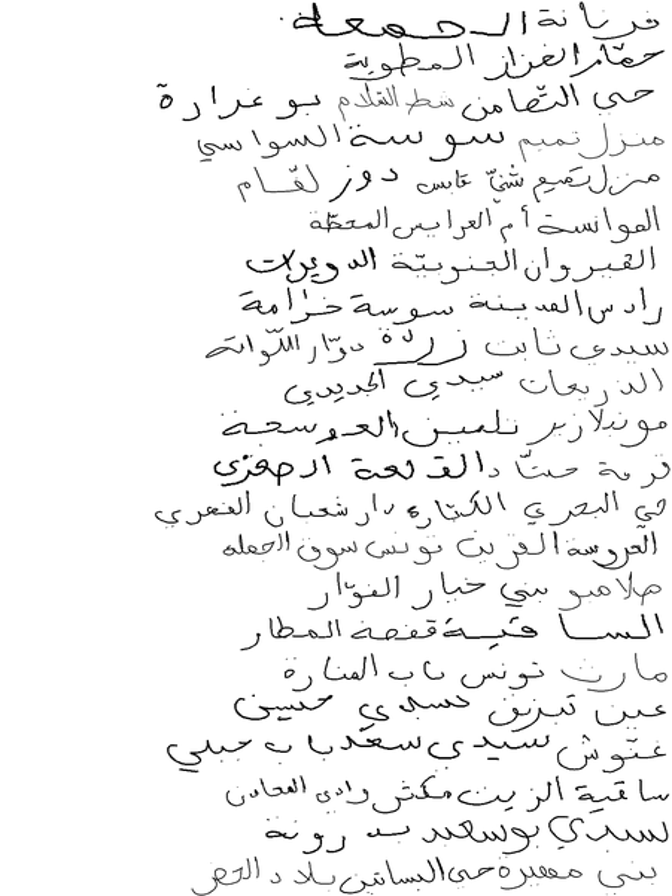 فرنانة الجمعة
حمّام الغزاز المطوية
حي التضامن شط السّلام بو غرارة
منزل تميم سوسة السواسي
منزل تميم شنّي قابس دوز لقّام
العوانسة أم العرايس المحطّة
القيروان الجنوبيّة الدويرات
رادس المدينة سوسة خزامة
سيدي ثابت دوّار اللّواتة
الذريعات سيدي الجديدي
مونبلازير تلمين العوسجة
قرية القلعة الصغرى
حي البحري دار شعبان الفهري
العروسة القرين تونس سوق الجملة
صلامبو بني خيار الفوّار
الساقية قفصة المطار
مارث تونس باب المنارة
عين تبرنق سيدي حسين
غنّوش سيدي سعد باب جبلي
ساقية الزيت مكثر وادي المعادن
سيدي بوسعيد بئر رونة
بني مهيرة حي البساتين بلاد الحضر